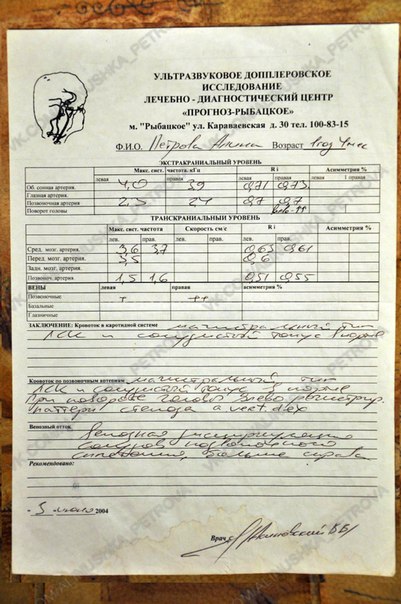 УЛЬТРАЗВУКОВОЕ ДОППЛЕРОВСКОЕ
ИССЛЕДОВАНИЕ
ЛЕЧЕБНО - ДИАГНОСТИЧЕСКИЙ ЦЕНТР
«ПРОГНОЗ-РЫБАЦКОЕ»
м. "Рыбацкое" ул. Караваевская д. 30 тел. 100-83-15
Ф.И.О. Петрова Возраст 1год 4мес
ЭКСТРАКРАНИАЛЬНЫЙ УРОВЕНЬ
Макс. сист. частота. кГц R i Асимметрия %
левая правая левая правая левая правая
Об. сонная артерия. 4,0 3,9 0,71 0,73
Глазная артерия.
Позвоночная артерия 2,3 2,4 0,7 0,7
Поворот головы
ТРАНСКРАНИАЛЬНЫЙ УРОВЕНЬ
Макс. сист. частота Скорость см/с R i Асимметрия %
лев. прав. лев. прав. лев. прав.
Сред. мозг. артерия. 3,6 3,7 0,63 0,61
Перед. мозг. артерия. 3,5 0,6
Задн. мозг. артерия.
Позвоноч. артерия 1,5 1,6 0,51 0,55
ВЕНЫ левая правая асимметрия %
Позвоночные + ++
Базальные
Глазничные
ЗАКЛЮЧЕНИЕ: Кровоток в каротидной системе магистральный тип
ЛСК и сосудистый тонус в норме
Кровоток по позвоночным артериям магистральный тип
ЛСК и сосудистый тонус в норме
При повороте головы влево регистрир.
паттерн стеноза a vert. dex
Венозный отток
Венозная дисциркуляция
сосудов позвоночного
сплетения больше справа
Рекомендовано:
5 2004
Врач
VK.COM/MANUSHKA_PETROVA